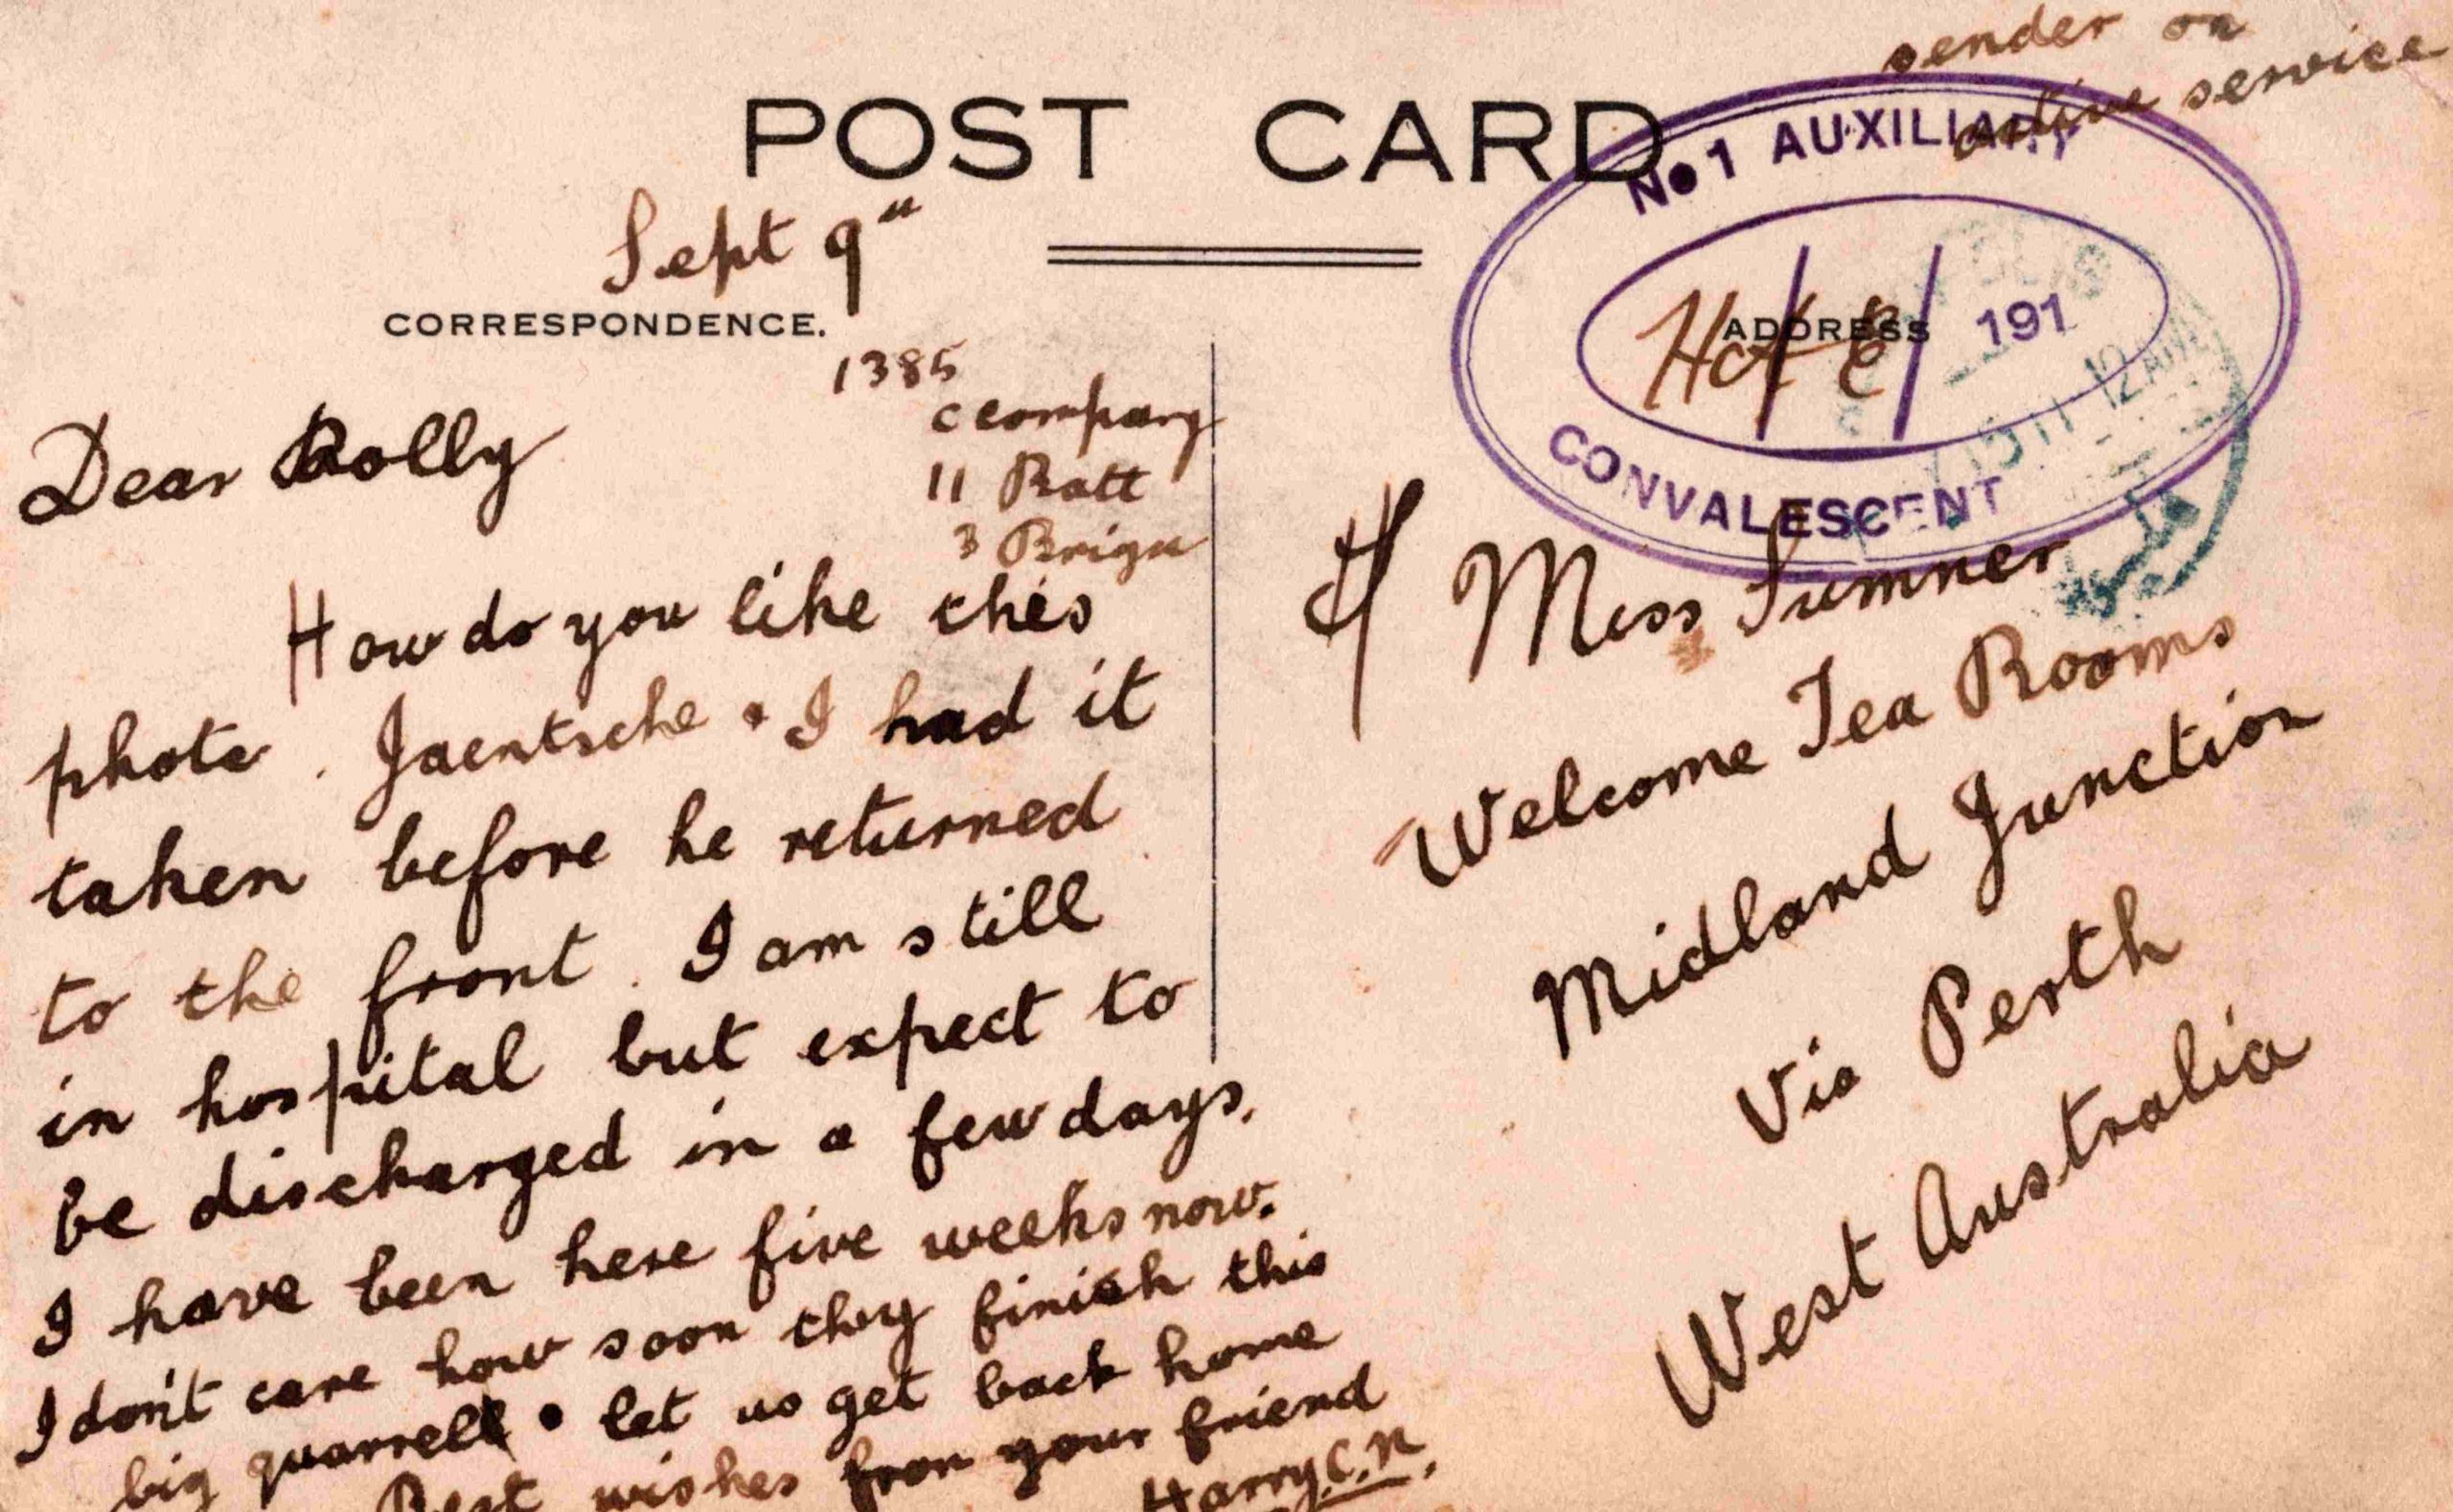 sender on
active service
POST CARD
No 1 AUXILIARY
191
CONVALESCENT
Sept 9"
CORRESPONDENCE.
ADDRESS
1385
C Company
11 Batt
3 Briga
Dear Dolly
How do you like this
photo. Jaentsche & I had it
taken before he returned
to the front. I am still
in hospital but expect to
be discharged in a few days.
I have been here five weeks now.
I don't care how soon they finish this
big quarrel & let us get back home
Best wishes from your friend
Harry C. N.
Miss Sumner
Welcome Tea Rooms
Midland Junction
Via Perth
West Australia